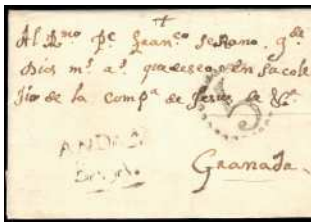 Al Rmo Pe Franco Serano. q de
Dios ms as que deseo en su cole
Jio de la Compa de Jesus de Va
5
ANDAL
Granada